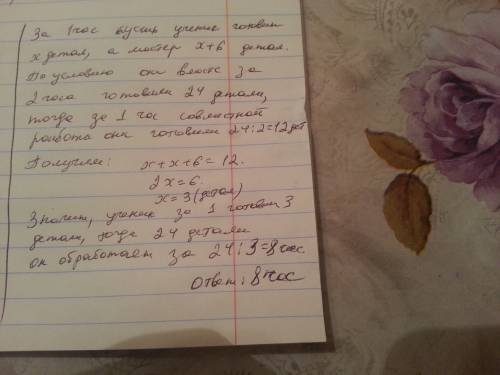 За 1 час пусть ученик готовит
x детал, а мастер x+6 детал.
По условию они вместе за
2 часа готовили 24 детали,
тогда за 1 час совместной
работа они готовили 24:2=12 дет
Получим: x+x+6=12.
2x=6.
x=3 (детал)
Значит, ученик за 1 готовит 3
детали, тогда 24 детали
он обработает за 24:3=8 час.
Ответ: 8 час